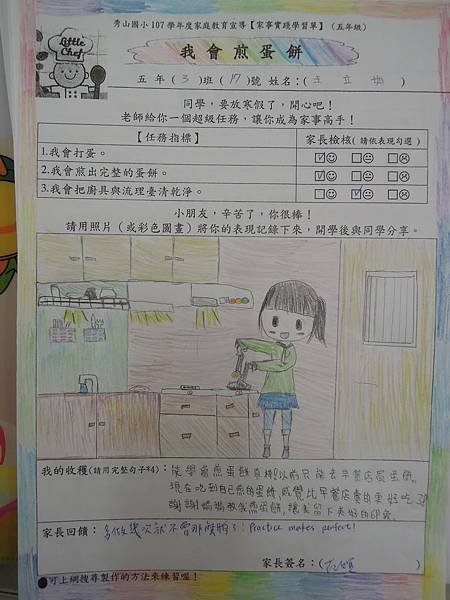 秀山國小107學年度家庭教育宣導【家事實踐學習單】(五年級)
Little Chef
我會煎蛋餅
五年(3)班(17)號 姓名:(王立
同學,要放寒假了,開心吧!
老師給你一個超級任務,讓你成為家事高手!
【任務指標】 家長檢核(請依表現勾選)
1.我會打蛋。
2.我會煎出完整的蛋餅。
3.我會把廚具與流理臺清乾淨。
小朋友,辛苦了,你很棒!
請用照片(或彩色圖畫)將你的表現記錄下來,開學後與同學分享。
我的收穫(請用完整句子*4):能學會煎蛋餅真棒!以前只能去早餐店買蛋餅。
現在吃到自己煎的蛋餅,感覺比早餐店賣的更好吃
謝謝媽媽教我煎蛋餅,讓我留下美好的印象。
家長回饋:多做幾次就不會那麼 Practice makes perfect!
家長簽名:(
●可上網搜尋製作的方法來練習喔!